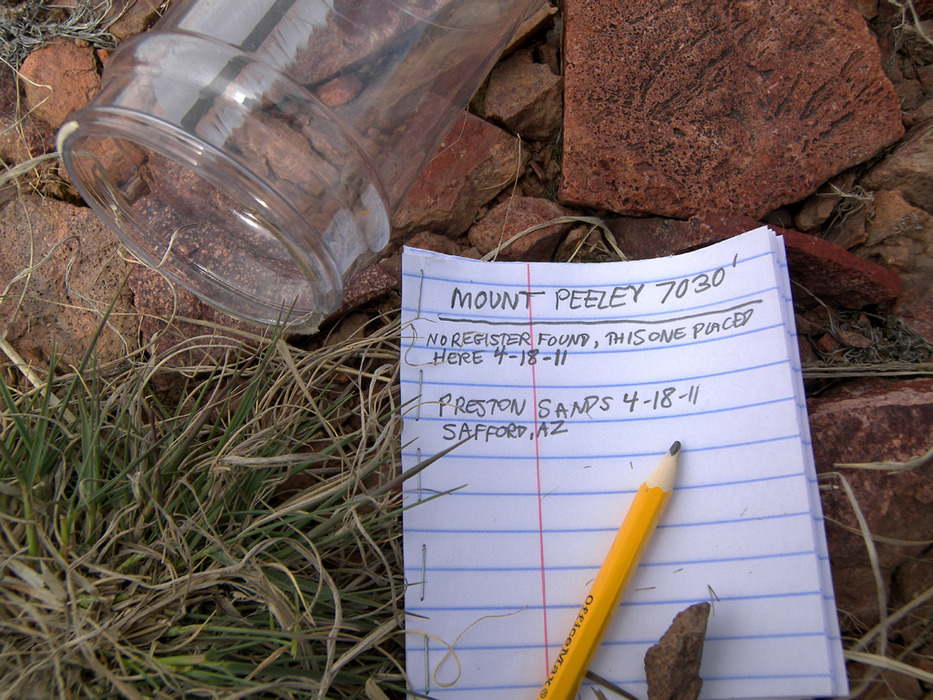 MOUNT PEELEY 7030'
NO REGISTER FOUND, THIS ONE PLACED
HERE 4-18-11
PRESTON SANDS 4-18-11
SAFFORD, AZ
OfficeMax®